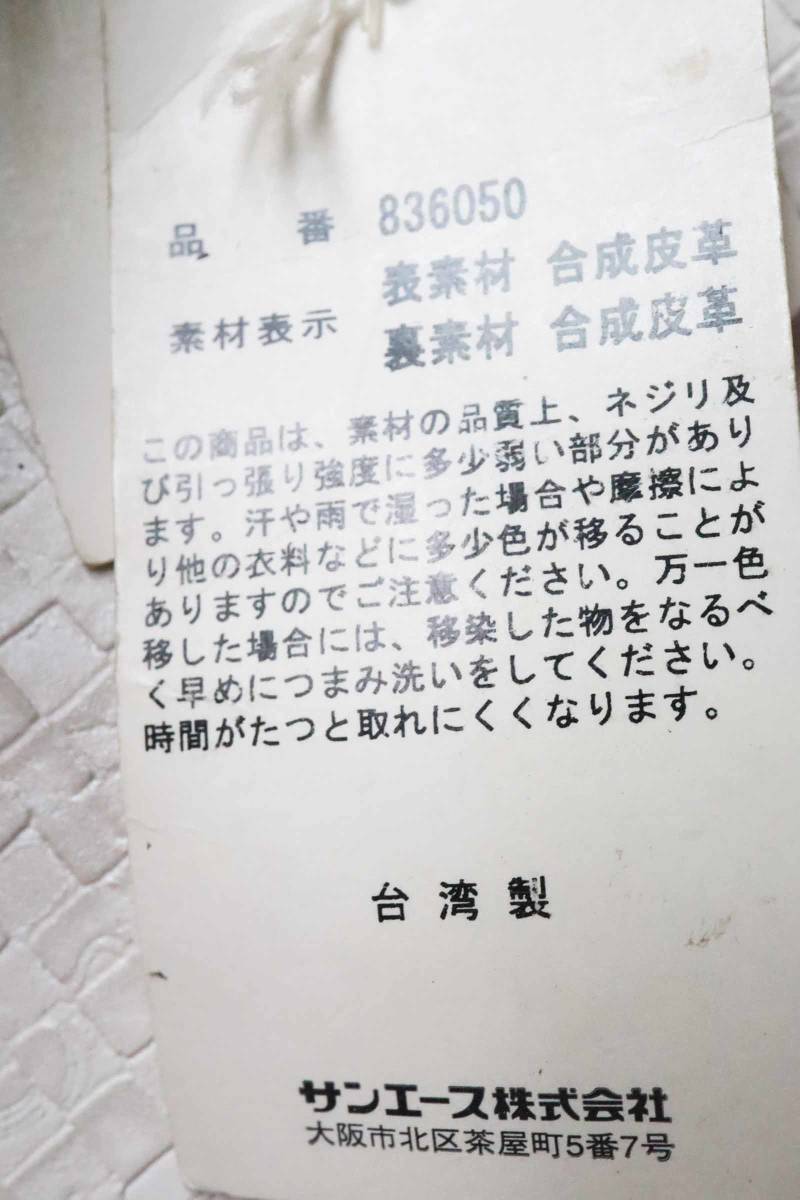 品番 836050
素材表示 表素材 合成皮革
裏素材 合成皮革
この商品は、素材の品質上、ネジリ及
び引っ張り強度に多少弱い部分があり
ます。汗や雨で湿った場合や摩擦によ
り他の衣料などに多少色が移ることが
ありますのでご注意ください。万一色
移した場合には、移染した物をなるべ
く早めにつまみ洗いをしてください。
時間がたつと取れにくくなります。
台湾製
サンエース株式会社
大阪市北区茶屋町5番7号